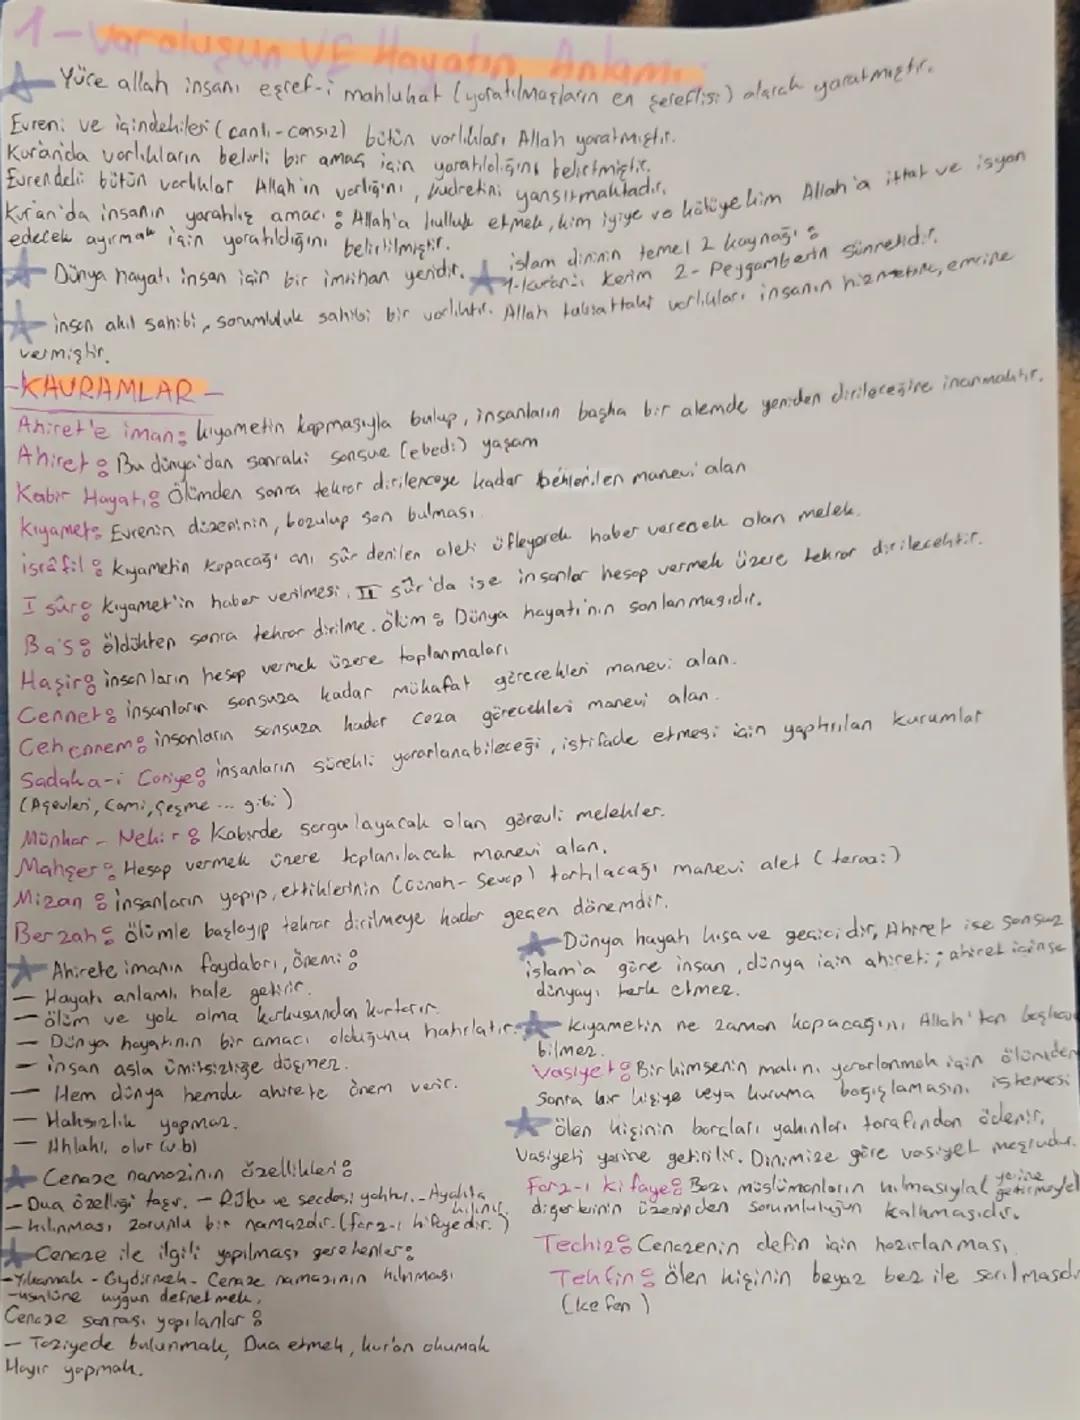 1-Varoluşun VE Hayatın Anlamı:
Yüce allah insanı eşref-i mahlukat (yaratılmışların en şereflisi) olarak yaratmıştır.
Evreni ve içindekileri (canlı-cansız) bütün varlıkları Allah yaratmıştır.
Kuran'da varlıkların belirli bir amaç için yaratıldığını belirtmiştir.
Evrendeki bütün varlıklar Allah'ın varlığını, kudretini yansıtmaktadır.
Kur'an'da insanın yaratılış amacı: Allah'a kulluk etmek, kim iyiye ve kötüye kim Allah'a itaat ve isyan
edecek ayırmak için yaratıldığını belirtilmiştir.
Dünya hayatı insan için bir imtihan yeridir.
islam dininin temel 2 kaynağı:
1-kuran-ı kerim 2- Peygamberin sünnetidir.
insan akıl sahibi, sorumluluk sahibi bir varlıktır. Allah tabiattaki varlıkları insanın hizmetine, emrine
vermiştir.
-KAVRAMLAR-
Ahiret'e iman: kıyametin kopmasıyla bulup, insanların başka bir alemde yeniden dirileceğine inanmaktır.
Ahiret: Bu dünya'dan sonraki sonsuz (ebedi) yaşam
Kabir Hayatı: Ölümden sonra tekrar dirilenceye kadar beklenilen manevi alan
Kıyamet: Evrenin düzeninin, bozulup son bulması
israfil: kıyametin kopacağı anı sûr denilen aleti üfleyerek haber verecek olan melek.
I sûr: kıyamet'in haber verilmesi, II sûr'da ise insanlar hesap vermek üzere tekrar dirilecektir.
Ba's: öldükten sonra tekrar dirilme. ölüm: Dünya hayatı'nın sonlanmasıdır.
Haşir: insanların hesap vermek üzere toplanmaları
Cennet: insanların sonsuza kadar mükafat görecekleri manevi alan.
Cehennem: insanların sonsuza kadar ceza görecekleri manevi alan.
Sadaka-i Cariye: insanların sürekli yararlanabileceği, istifade etmesi için yaptırılan kurumlar
(Aşevleri, Cami, Çeşme ... gibi)
Münker - Nekir: Kabirde sorgulayacak olan görevli melekler.
Mahşer: Hesap vermek üzere toplanılacak manevi alan.
Mizan: insanların yapıp, ettiklerinin (Günah-Sevap) tartılacağı manevi alet (terazi)
Berzah: ölümle başlayıp tekrar dirilmeye kadar geçen dönemdir.
Ahirete imanın faydaları, önemi:
- Hayatı anlamlı hale getirir.
- ölüm ve yok olma korkusundan kurtarır.
- Dünya hayatının bir amacı olduğunu hatırlatır.
- insan asla ümitsizliğe düşmez.
- Hem dünya hemde ahirete önem verir.
- Haksızlık yapmaz.
- Ahlaklı olur (v.b)
Cenaze namazının özellikleri:
- Dua özelliği taşır. - Rüku ve secdesi yoktur. - Ayakta kılınır.
- kılınması zorunlu bir namazdır. (farz-ı kifayedir.)
Cenaze ile ilgili yapılması gerekenler:
- Yıkamak - Giydirmek - Cenaze namazının kılınması
- usulüne uygun defnetmek.
Cenaze sonrası yapılanlar:
- Taziyede bulunmak, Dua etmek, kur'an okumak
Hayır yapmak.
Dünya hayatı kısa ve geçicidir, Ahiret ise sonsuz
islam'a göre insan, dünya için ahireti; ahiret içinse
dünyayı terk etmez.
kıyametin ne zaman kopacağını Allah'tan başkası
bilmez.
Vasiyet: Bir kimsenin malını yararlanmak için ölümden
Sonra bir kişiye veya kuruma bağışlamasını istemesi
ölen kişinin borçları yakınları tarafından ödenir,
Vasiyeti yerine getirilir. Dinimize göre vasiyet meşrudur.
Farz-ı kifaye: Bazı müslümanların kılmasıyla (yerine getirmesiyle)
diğerlerinin üzerinden sorumluluğun kalkmasıdır.
Techiz: Cenazenin defin için hazırlanması
Tekfin: ölen kişinin beyaz bez ile sarılmasıdır
(kefen)